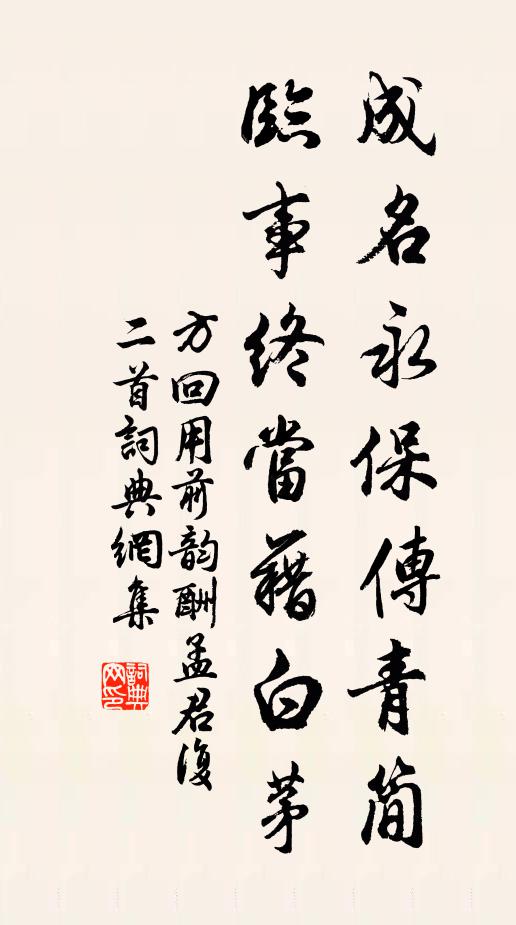 成名永保傳青簡
臨事終當藉白茅
方回用前韵酬孟君復
二首詞典網集
詞典网印